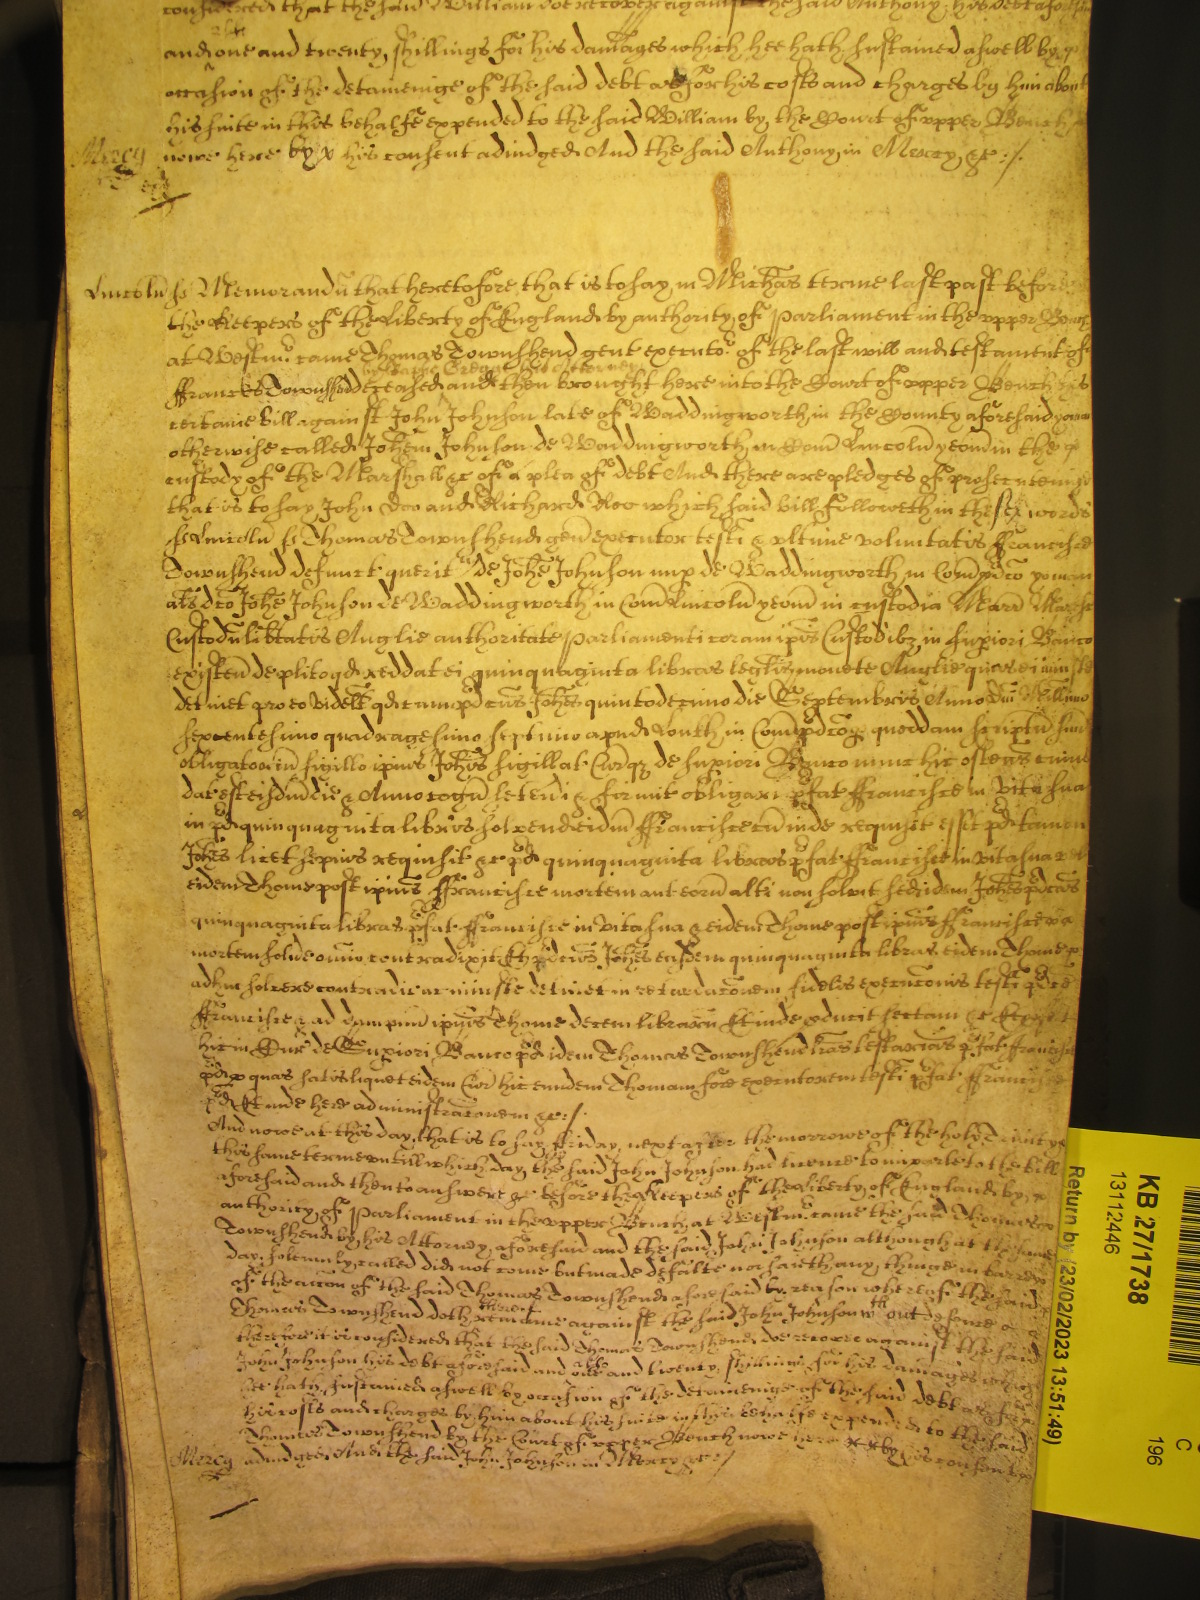 considered that the said William doe recover against the said Anthony his debt aforesaid
and one and twenty shillings for his damages which hee hath sustained aswell by
occasion of the deteineinge of the said debt as for his costs and charges by him about
his suite in this behalfe expended to the said William by the Court of upper Bench
Mercy nowe here by his consent adiudged And the said Anthony in Mercy &c :/
Lincoln ss Memorandū that heretofore that is to say in Michãs terme last past before
the Keepers of the Liberty of England by authority of Parliament in the upper Bench
at Westmr. came Thomas Townshend gent executor of the last will and testament of
Francis Townshend deceased and then brought here into the Court of upper Bench his
certaine bill against John Johnson late of Waddingworth in the County aforesaid yeom
otherwise called Johem Johnson de Waddingworth in Com Lincoln yeom in the
custody of the Marshall &c of a plea of debt And there are pledges of prosecuteinge
that is to say John Doo and Richard Roo which said bill followeth in these words
ss Lincoln ss Thomas Townshend gen executor testi & ultime voluntatis Francisce
Townshend defunct querit de Johe Johnson nup de Waddingworth in Com pdco yoman
als dco Johe Johnson de Waddingworth in Com Lincoln yeom in custodia Marr Marese
Custod libtatis Anglie authoritate Parliamenti coram ipis Custodibz in supiori Banco
existen de plito qd reddat ei quinquaginta libras legalis monete Anglie quas ei iniuste
detinet pro eo videlt qd cum pdcus Johes quintodecimo die Septembris Anno Dni Millimo
sexcentesimo quadragesimo septimo apud Louth in Com pdco p quoddam scriptū suū
obligatoriū sigillo ipius Johis sigillat Curq de supiori Banco nunc hic ostens cuius
dat est eisdm die & Anno cogn se teneri & firmit obligari pfat Francisce in vita sua
in pd quinquaginta libris solvend eidm Francisce cū inde requisit esset pd tamen
Johes licet sepius requisit &c pd quinquaginta libras pfat Francisce in vita sua
eidem Thome post ipius Francisce mortem aut eorū alti non solvit sed idem Johes pdcus
quinquaginta libras pfat Francisce in vita sua & eidem Thome post ipius Francisce
mortem solve omīo contradixit Et pdcus Johes easdem quinquaginta libras eidem Thome
adhuc solvere contradic ac iniuste detinet in retardacōnem fidelis execucōnis testi pdce
Francisce & ad dampnū ipius Thome decem librarū Et inde producit sectam &c Et profert
hic in Cur de Supiori Banco pd idem Thomas Townshend lras testarias pfat Francisce
pd p quas satis liquet eidem Cur hic eundem Thomam fore executorem testi pfat Francisce
pd Et inde here administracōnem &c :/
And nowe at this day that is to say Friday next after the morrowe of the holy Trinitye
this same terme untill which day the said John Johnson had licence to imparle to the bill
aforesaid and then to answere &c before the Keepers of the Liberty of England by
authority of Parliament in the upper Bench at Westmr. came the said Thomas
Townshend by his Attorney aforesaid and the said John Johnson although at the same
day solemnly called did not come but made default nor saieth any thinge in barre
of the accon of the said Thomas Townshend aforesaid by reason whereof the said
Thomas Townshend doth thereof remaine against the said John Johnson wth out defence
therefore it is considered that the said Thomas Townshend doe recover against the said
John Johnson his debt aforesaid and one and twenty shillings for his damages which
hee hath sustained aswell by occasion of the deteineinge of the said debt as for
his costs and charges by him about his suite in this behalfe expended to the said
Thomas Townshend by the Court of upper Bench nowe here by his consent
Mercy adiudged And the said John Johnson in Mercy &c :/
KB 27/1738
13112446
Return by (23/02/2023 13:51:49)
196
C